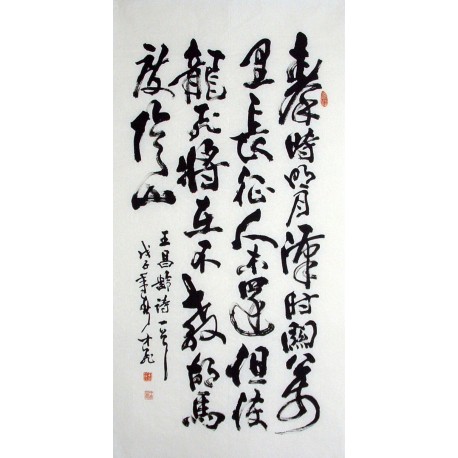 秦時明月漢时關萬
里長征人未還但使
龍飛將在不教胡馬
度陰山
王昌齡诗一首
戊子年